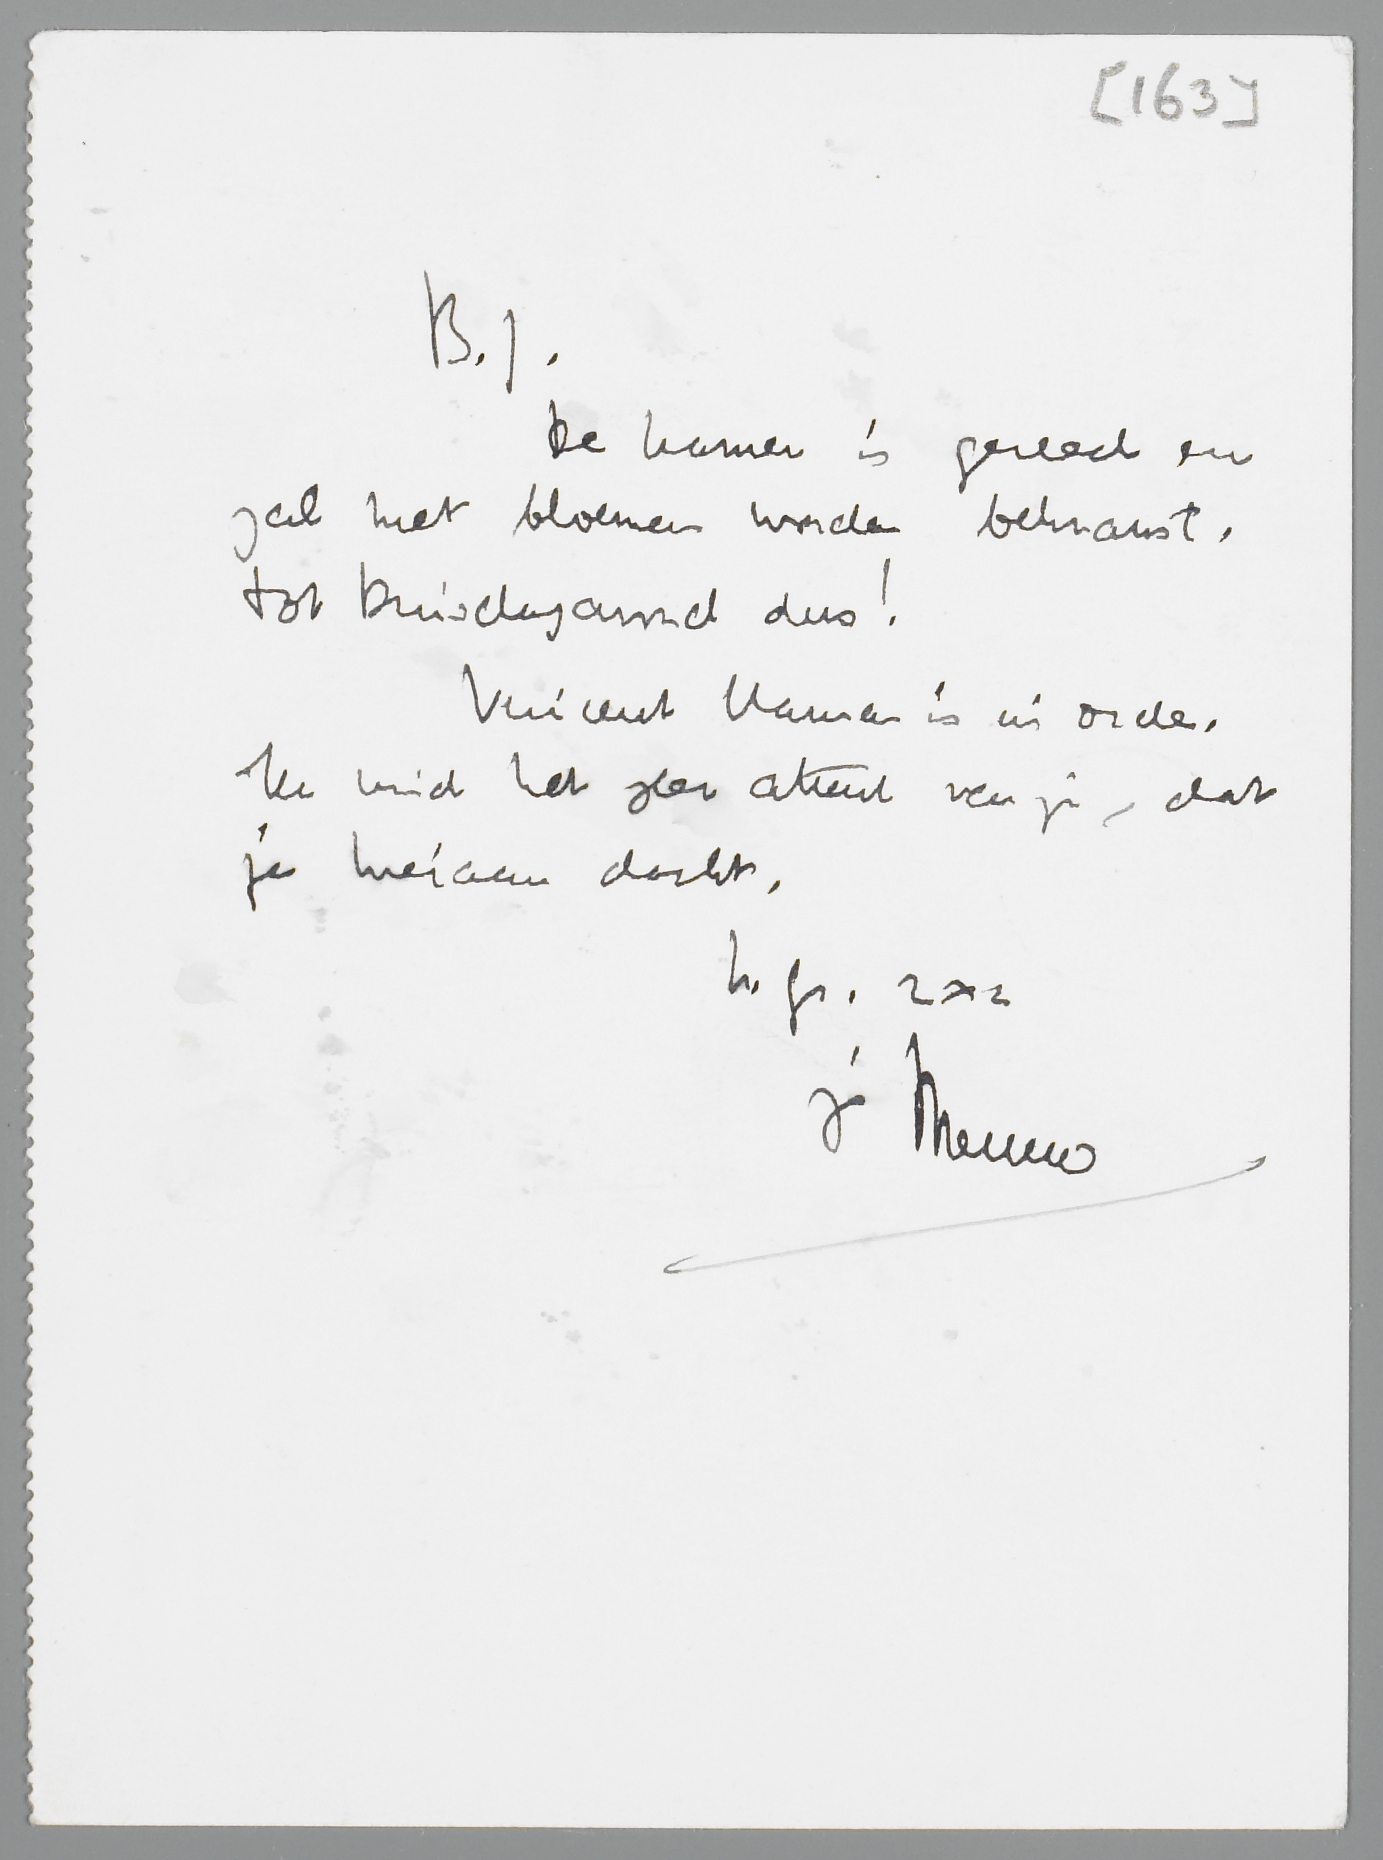 [163]
B. J.
De kamer is gereed en
zal met bloemen worden bekranst.
Tot Dinsdagavond dus!
Vincent Kamer is in orde.
Ik vind het zeer attent van je, dat
je hieraan dacht.
h. gr. 2 x 2
je Menno